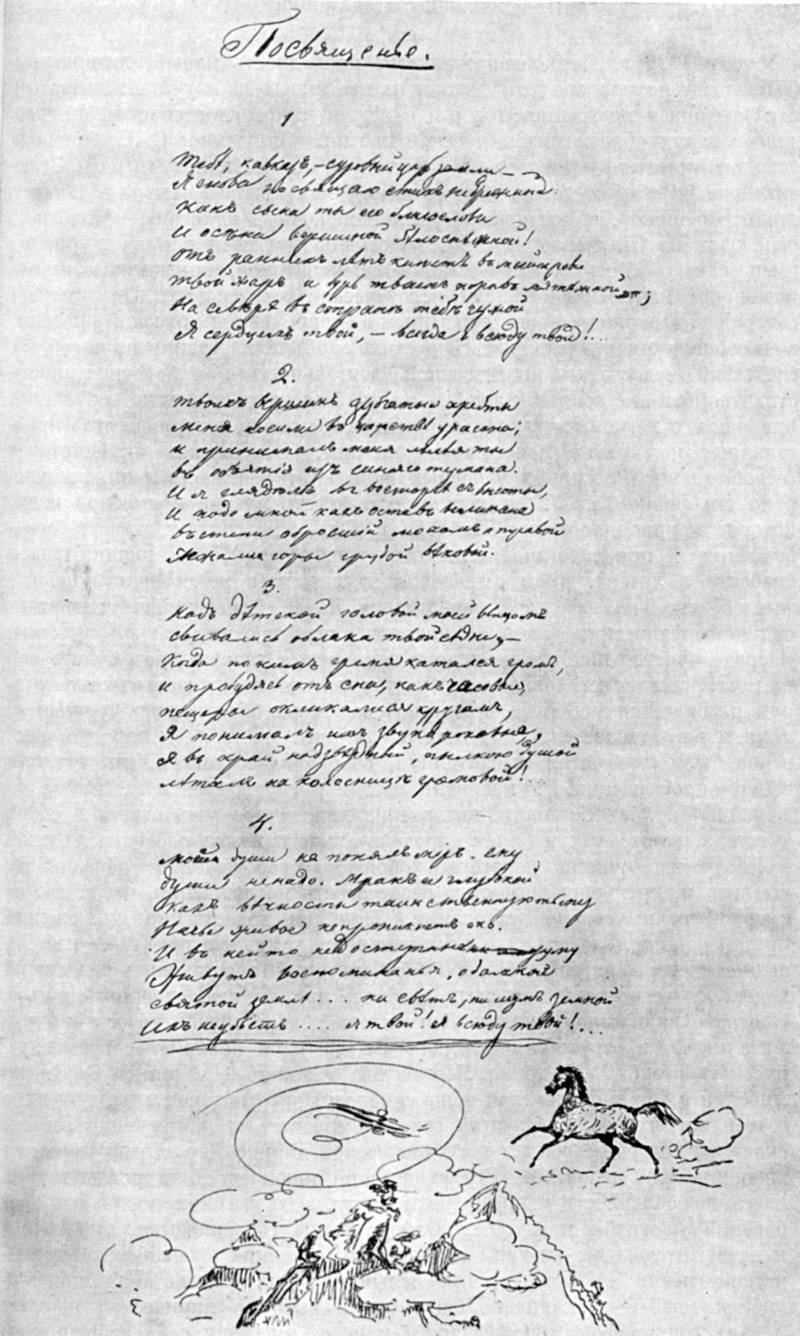 Посвященье.
1
Тебѣ, кавказъ, – суровый царь земли –
Я снова посвящаю стихъ небрежный:
Какъ сына ты его благослови
И осѣни вершиной бѣлоснѣжной!
Отъ раннихъ лѣтъ кипитъ въ моей крови
Твой жаръ и бурь твоихъ порывъ мятежной;
На сѣверѣ въ странѣ тебѣ чужой
Я сердцемъ твой, – всегда и всюду твой!...
2.
Твоихъ вершинъ зубчатые хребты
Меня носили въ царствѣ урагана;
И принималъ меня лелѣя ты
Въ объятія изъ синяго тумана.
И я глядѣлъ въ восторгѣ съ высоты,
И подо мной какъ остовъ великана
Въ степи обросшій мохомъ и травой
Лежали горы грудой вѣковой.
3.
Надъ дѣтской головой моей вѣнцомъ
Свивались облака твои сѣдые, –
Когда по нимъ гремя катался громъ,
И пробудясь отъ сна, какъ часовые,
Пещеры окликалися кругомъ,
Я понималъ ихъ звуки роковые,
Я въ край надзвѣздный, пылкою душой
Леталъ на колесницѣ громовой!...
4.
Моей души не понялъ міръ. ему
Души не надо. Мракъ ея глубокой
Какъ вѣчности таинственную тьму
Ничье живое не проникнетъ око.
И въ ней-то недоступные уму
Живутъ воспоминанья, о далекой
Святой землѣ... ни свѣтъ, ни шумъ земной
Ихъ не убьетъ.... я твой! я всюду твой!...